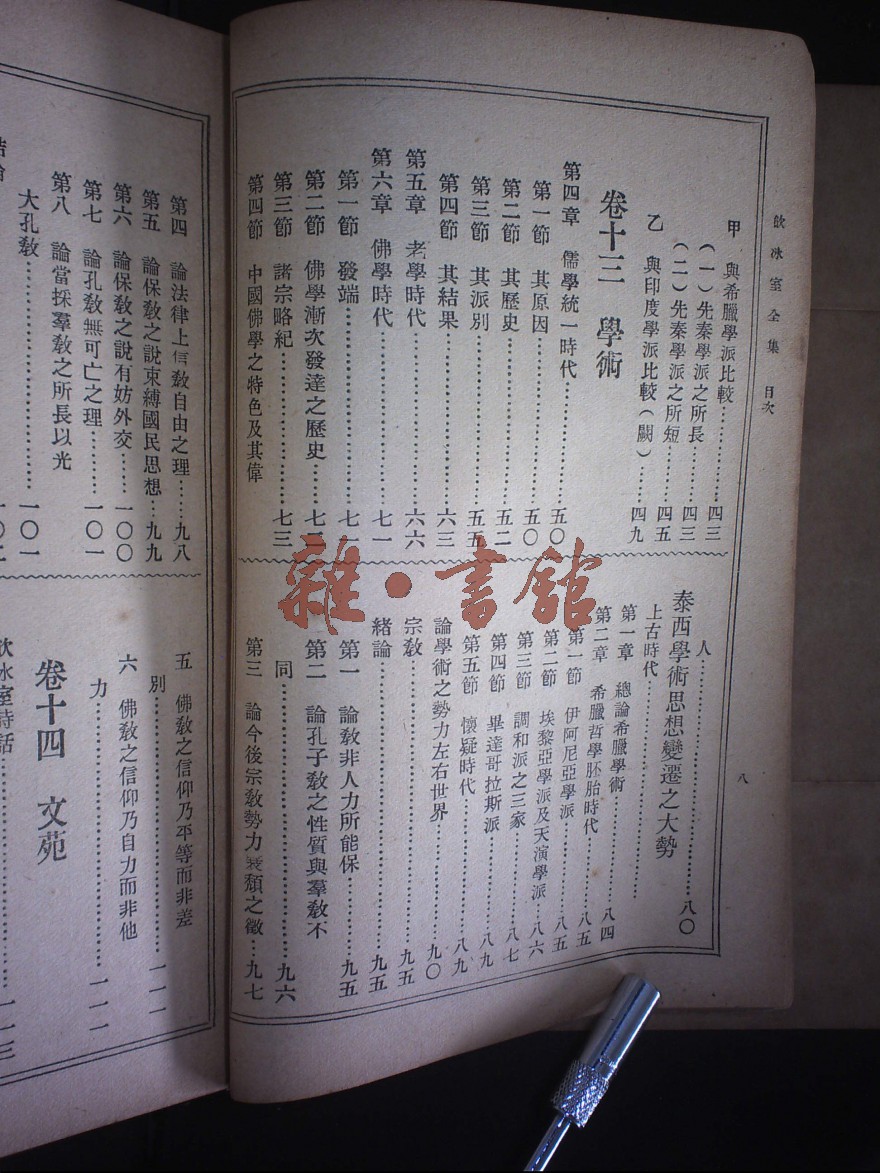 飲冰室全集　目次
八
甲　與希臘學派比較…………四三
（一）先秦學派之所長…………四三
（二）先秦學派之所短…………四五
乙　與印度學派比較（闕）……四九
卷十三　學術
第四章　儒學統一時代…………五〇
第一節　其原因…………五〇
第二節　其歷史…………五二
第三節　其派別…………五五
第四節　其結果…………六三
第五章　老學時代…………六六
第六章　佛學時代…………七一
第一節　發端…………七一
第二節　佛學漸次發達之歷史……七二
第三節　諸宗略紀…………七三
第四節　中國佛學之特色及其偉
人…………八〇
泰西學術思想變遷之大勢
上古時代…………
第一章　總論希臘學術…………八四
第二章　希臘哲學胚胎時代……八五
第一節　伊阿尼亞學派…………八五
第二節　埃黎亞學派及天演學派…八六
第三節　調和派之三家…………八七
第四節　畢達哥拉斯派…………八九
第五節　懷疑時代…………八九
論學術之勢力左右世界…………九〇
宗教…………九五
緒論…………九五
第一　論教非人力所能保…………九五
第二　論孔子教之性質與羣教不
同…………九六
第三　論今後宗教勢力衰頹之徵…九七
第四　論法律上信教自由之理……九八
第五　論保教之說束縛國民思想…九九
第六　論保教之說有妨外交……一〇〇
第七　論孔教無可亡之理……一〇一
第八　論當採羣教之所長以光
大孔教…………一〇一
一〇二
五　佛教之信仰乃平等而非差
別…………一一一
六　佛教之信仰乃自力而非他
力…………一一一
卷十四　文苑
飲冰室詩話…………一一三
雜·書館